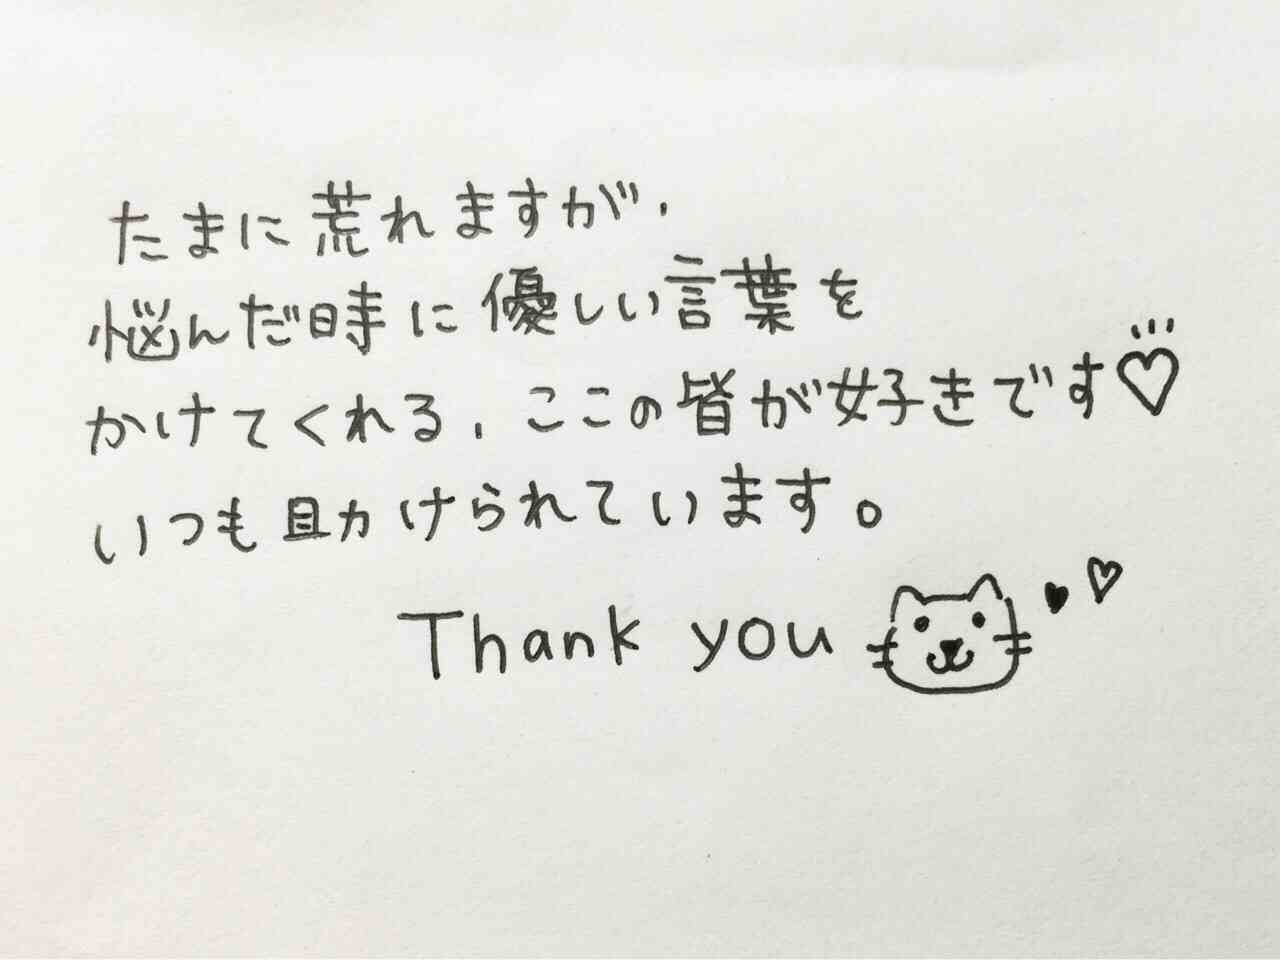 たまに荒れますが、
悩んだ時に優しい言葉を
かけてくれる、ここの皆が好きです♡
いつも助けられています。
Thank you